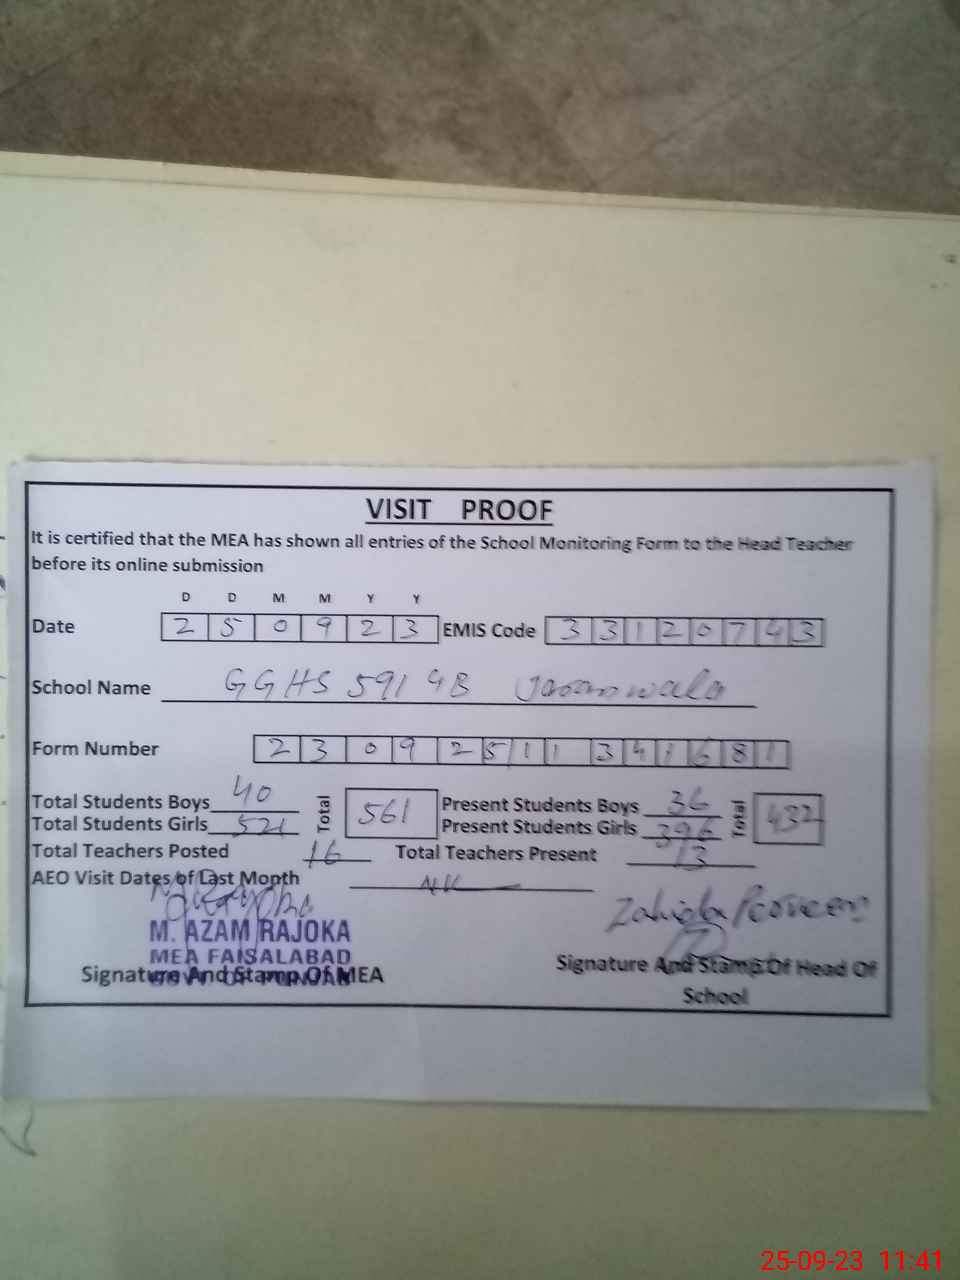 VISIT PROOF
It is certified that the MEA has shown all entries of the School Monitoring Form to the Head Teacher
before its online submission
D D M M Y Y
Date 2 5 0 9 2 3 EMIS Code 3 3 1 2 0 7 4 3
School Name GGHS 591 GB
Form Number 2 3 0 9 2 5 1 1 3 4 1 6 8 1
Total Students Boys 40 Total 561 Present Students Boys 36 Total 432
Total Students Girls 521 Present Students Girls 396
Total Teachers Posted 16 Total Teachers Present 13
AEO Visit Dates of Last Month
Zahida Perveen
M. AZAM RAJOKA
MEA FAISALABAD
GOVT OF PUNJAB
Signature And Stamp Of MEA
Signature And Stamp Of Head Of
School
25-09-23 11:41